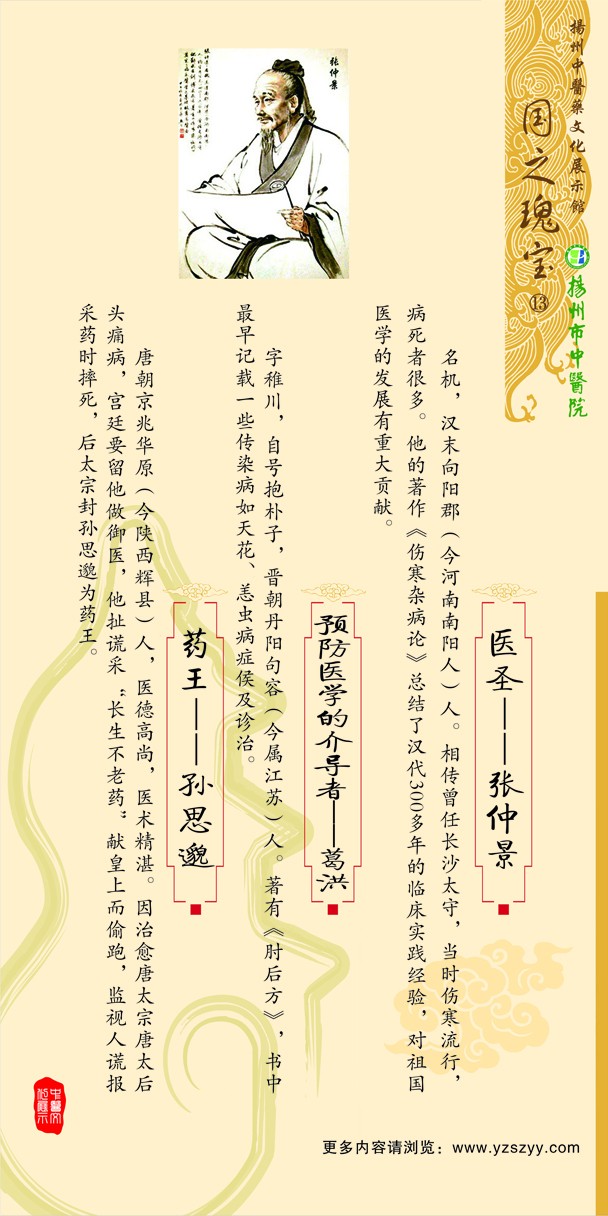 揚州中醫藥文化展示館
国之瑰宝⑬
揚州市中醫院
张仲景
医圣——张仲景
名机，汉末向阳郡（今河南南阳人）人。相传曾任长沙太守，当时伤寒流行，
病死者很多。他的著作《伤寒杂病论》总结了汉代300多年的临床实践经验，对祖国
医学的发展有重大贡献。
预防医学的介导者——葛洪
字稚川，自号抱朴子，晋朝丹阳句容（今属江苏）人。著有《肘后方》，书中
最早记载一些传染病如天花、恙虫病症侯及诊治。
药王——孙思邈
唐朝京兆华原（今陕西辉县）人，医德高尚，医术精湛。因治愈唐太宗唐太后
头痛病，宫廷要留他做御医，他扯谎采“长生不老药”献皇上而偷跑，监视人谎报
采药时摔死，后太宗封孙思邈为药王。
更多内容请浏览：www.yzszyy.com